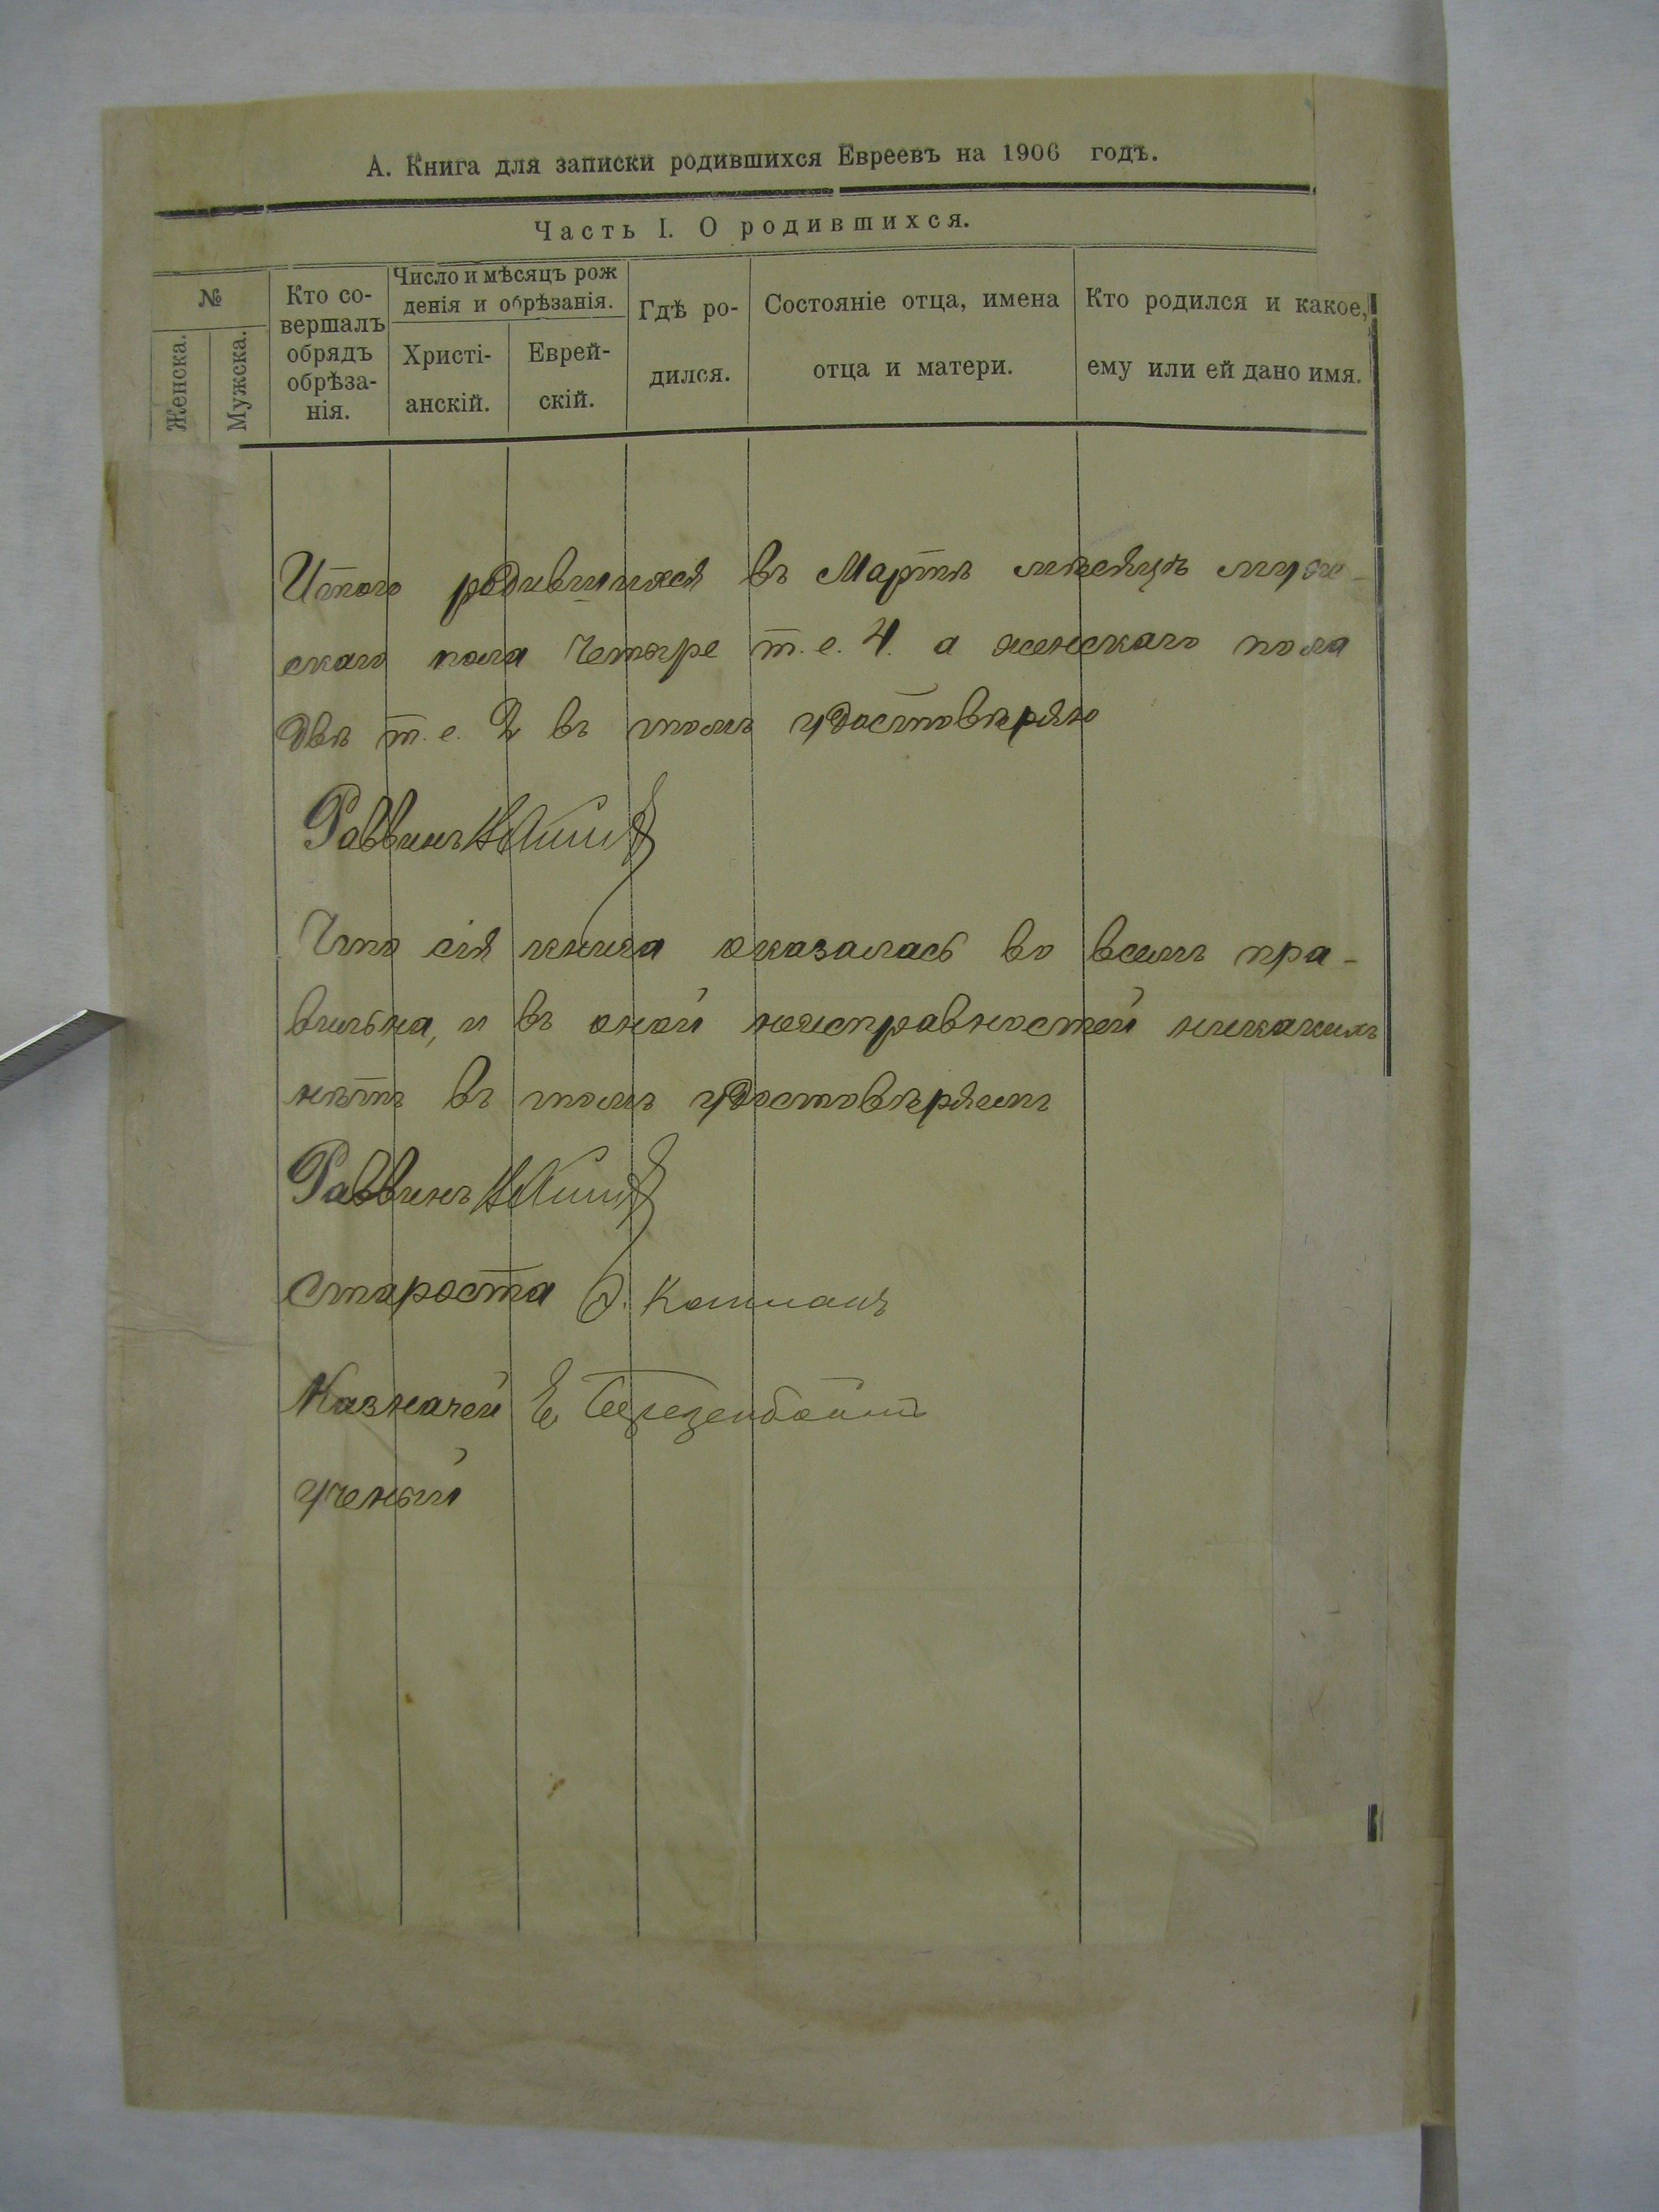 А. Книга для записки родившихся Евреевъ на 1906 годъ.
Часть I. О родившихся.
№
Женска.
Мужска.
Кто со-
вершалъ
обрядъ
обрѣза-
нія.
Число и мѣсяцъ рож
денія и обрѣзанія.
Христі-
анскій.
Еврей-
скій.
Гдѣ ро-
дился.
Состояніе отца, имена
отца и матери.
Кто родился и какое,
ему или ей дано имя.
Итого родившихся въ Мартѣ мѣсяцѣ муж-
скаго пола четыре т.е. 4. а женскаго пола
двѣ т.е. 2 въ томъ удостовѣряю
Раввинъ
Что сія книга оказалась во всемъ пра-
вильна, и въ оной неисправностей никакихъ
нѣтъ въ томъ удостовѣряемъ
Раввинъ
Староста
Казначей Е
Ученый